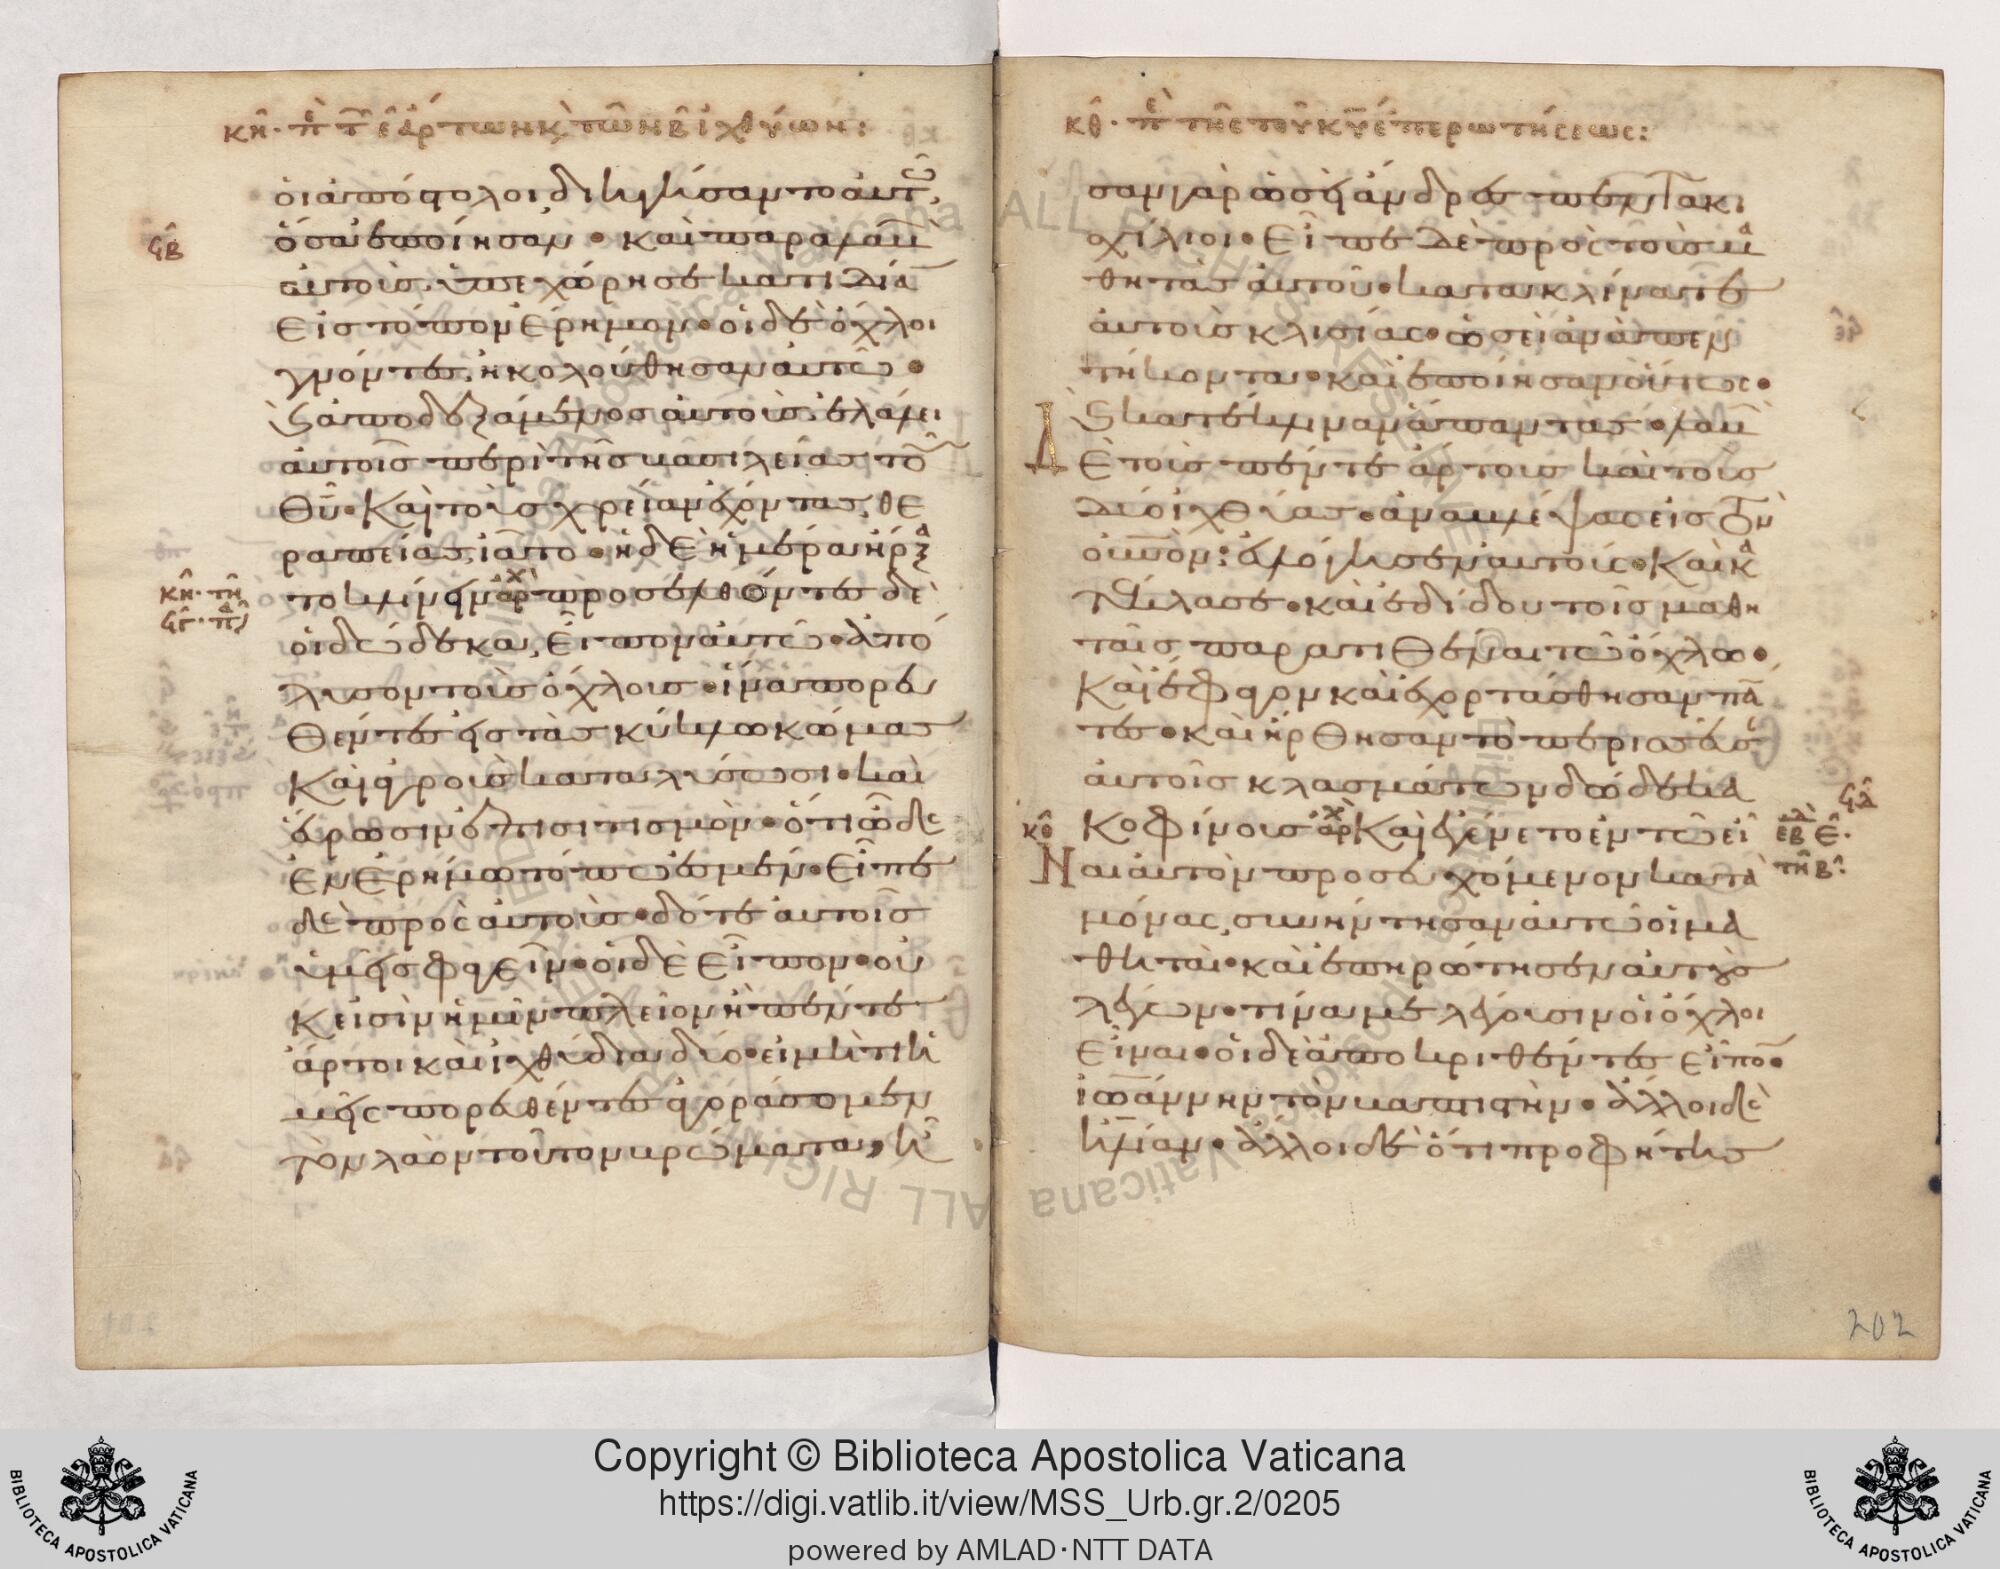 κη̑· πὲ τ̅ ε̑ ἄρτων κ̀ τῶν β̑ ἰχθύων:
οἱ ἀπόστολοι διηγήσαντο αὐτῶ,
ὅσα ἐποίησαν · καὶ παραλαβ
αὐτοὺς ὑπεχώρησε κατιδία
Εἰς τόπον Ἔρημον · οἱ δὲ ὄχλοι
γνόντες, ἠκολούθησαν αὐτῶ ·
ϛ ἀποδεξάμενος αὐτοὺς ἐλάλει
αὐτοῖς περὶ τῆς βασιλείας τοῦ
Θῦ · Καὶ τοὺς χρείαν ἔχοντας θε
ραπείας, ἰᾶτο · ἡ δὲ ἡμέρα ἤρξα
το κλίνειν ἀρχ προσελθόντες δὲ
οἱ δώδεκα, Εἶπον αὐτῶ · ἀπό
λυσον τοὺς ὄχλους · ἵνα πορευ
Θέντες εἰς τὰς κύκλω κώμας
Καὶ ἀγροὺς καταλύσωσι · καὶ
εὕρωσιν ἐπισιτισμὸν · ὅτι ὧδε
ἐν Ἐρήμω τόπω ἐσμέν · Εἶπε
δὲ πρὸς αὐτοὺς · δότε αὐτοῖς
ὑμεῖς φαγεῖν · οἱ δὲ Εἶπον · οὐ
κ εἰσὶν ἡμῖν πλεῖον ἢ πέντε
ἄρτοι καὶ ἰχθύδια δύο · εἰ μήτι ἡ
μεῖς πορευθέντες ἀγοράσομεν
τὸν λαὸν τοῦτον βρώματα, ἦ
ϛβ
κη̑· τη̑
ϛγ·
κθ̑· πὲ τῆς τοῦ κῦ ἐπερωτήσεως:
σαν γὰρ ὡσεὶ ἄνδρες πεντακι
σχίλιοι · Εἶπε δὲ πρὸς τοὺς μα
θητὰς αὐτοῦ · κατακλίνατε
αὐτοὺς κλισίας · ὡσεὶ ἀνὰ πεν
τήκοντα · καὶ ἐποίησαν οὕτως ·
ϛ κατέκλιναν ἅπαντας · λαβ
Δ Ὲ τοὺς πέντε ἄρτους καὶ τοὺς
δύο ἰχθύας · ἀναβλέψας εἰς τὸν
οὐνὸν: εὐλόγησεν αὐτούς · Καὶ κα
τέκλασε · καὶ ἐδίδου τοῖς μαθη
ταῖς παρατιθέναι τῶ ὄχλω ·
Καὶ ἔφαγον καὶ ἐχορτάσθησαν πά
τες · καὶ ἤρθησαν τὸ περισσεῦσ
αὐτοῖς κλασμάτων δώδεκα
Κοφίνοις ἀρχ Καὶ ἐγένετο ἐν τῶ εἶ
Ναι αὐτὸν προσευχόμενον κατὰ
μόνας, συνήντησαν αὐτῶ οἱ μα
θηταὶ · καὶ ἐπηρώτησεν αὐτοὺς
λέγων · τίνα με λέγουσιν οἱ ὄχλοι
εἶναι · οἱ δὲ ἀποκριθέντες εἶπον ·
ἰωάννην τὸν βαπτιστὴν · ἄλλοι δὲ
ἠλίαν · ἄλλοι δὲ ὅτι προφήτης
ϛδ
κθ̑
εβ ε̑·
τη̑ β·
202
Copyright © Biblioteca Apostolica Vaticana
https://digi.vatlib.it/view/MSS_Urb.gr.2/0205
powered by AMLAD·NTT DATA
BIBLIOTECA APOSTOLICA VATICANA
BIBLIOTECA APOSTOLICA VATICANA